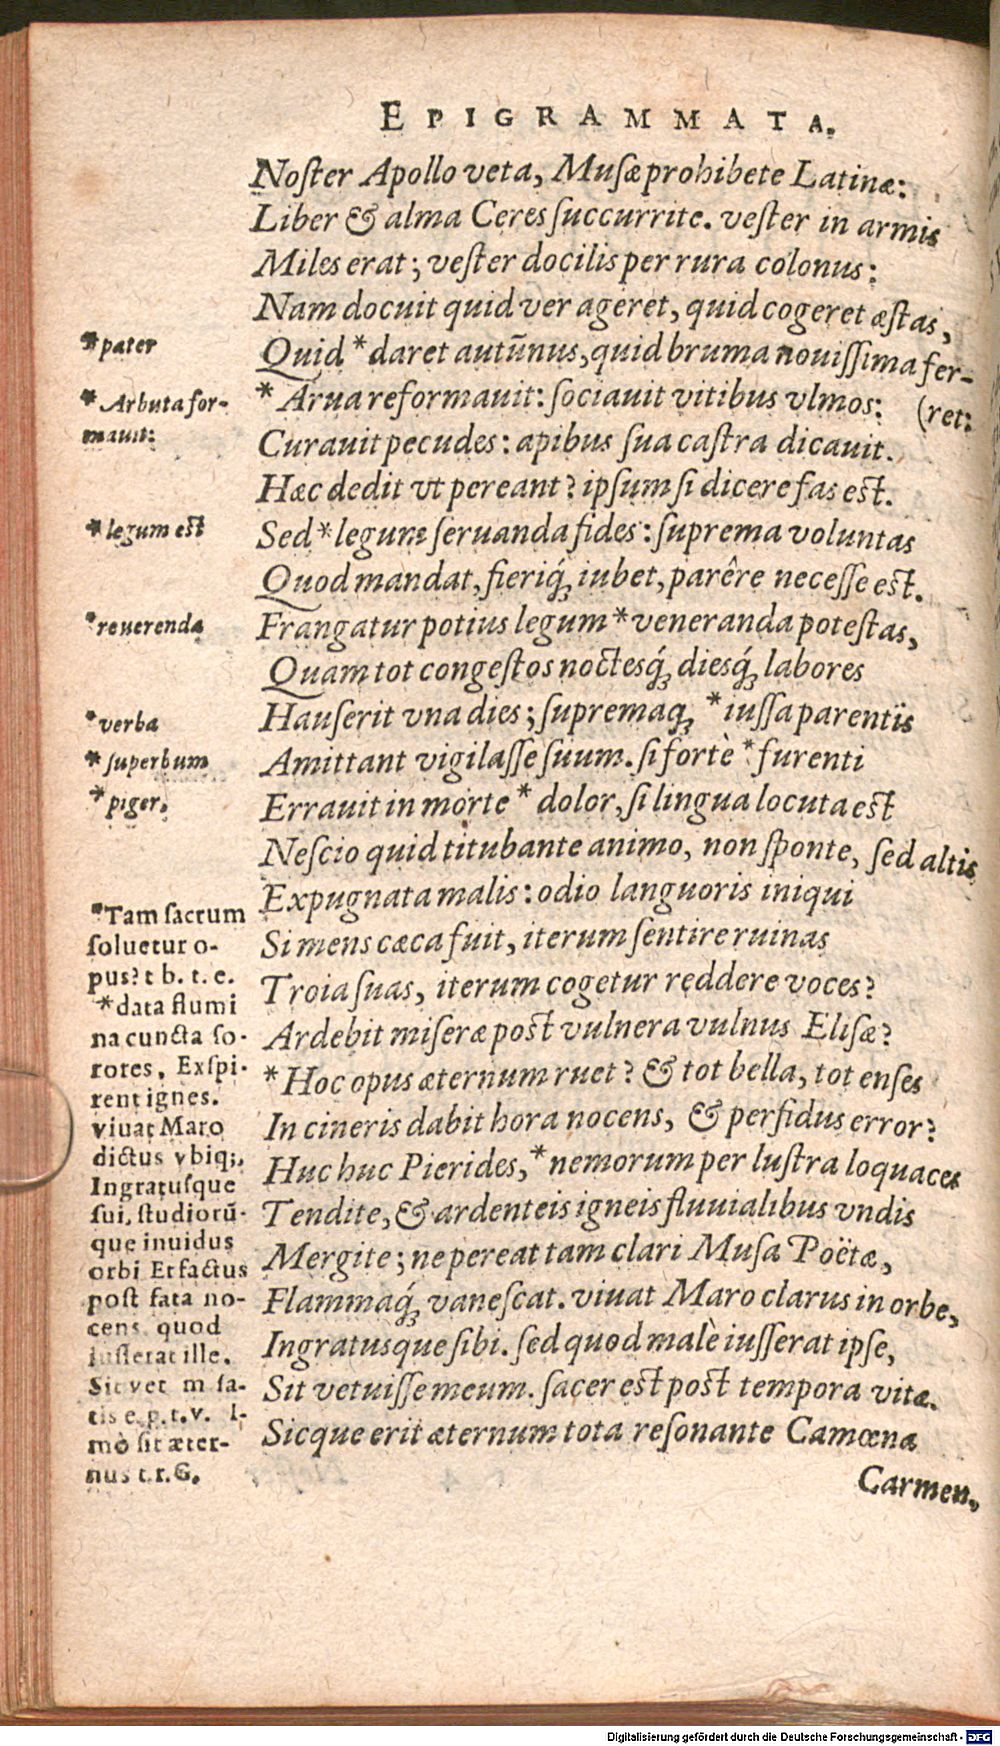 EPIGRAMMATA.
Noſter Apollo veta, Muſæ prohibete Latinæ:
Liber & alma Ceres ſuccurrite. veſter in armis
Miles erat; veſter docilis per rura colonus:
Nam docuit quid ver ageret, quid cogeret æſtas,
Quid *daret autũnus, quid bruma nouiſſima fer-
* Arua reformauit: ſociauit vitibus vlmos: (ret:
Curauit pecudes: apibus ſua caſtra dicauit.
Hæc dedit vt pereant? ipſum ſi dicere fas eſt.
Sed *legum ſeruanda fides: ſuprema voluntas
Quod mandat, fieriq́ꝫ iubet, parêre neceſſe eſt.
Frangatur potius legum *veneranda poteſtas,
Quam tot congeſtos noctesq́ꝫ diesq́ꝫ labores
Hauſerit vna dies; ſupremaqꝫ *iuſſa parentïs
Amittant vigilaſſe ſuum. ſi fortè *furenti
Errauit in morte * dolor, ſi lingua locuta eſt
Neſcio quid titubante animo, non ſponte, ſed altis
Expugnata malis: odio languoris iniqui
Si mens cæca fuit, iterum ſentire ruinas
Troia ſuas, iterum cogetur reddere voces?
Ardebit miſeræ poſt vulnera vulnus Eliſæ?
* Hoc opus æternum ruet? & tot bella, tot enſes
In cineris dabit hora nocens, & perfidus error?
Huc huc Pierides, *nemorum per luſtra loquaces
Tendite, & ardenteis igneis fluuialibus vndis
Mergite; ne pereat tam clari Muſa Poëtæ,
Flammaq́ꝫ vaneſcat. viuat Maro clarus in orbe,
Ingratusque ſibi. ſed quod malè iuſſerat ipſe,
Sit vetuiſſe meum. ſacer eſt poſt tempora vitæ.
Sicque erit æternum tota reſonante Camœna
Carmen,
*pater
* Arbuta for-
mauit:
* legum eſt
*reuerenda
*verba
* ſuperbum
* piger.
*Tam ſacrum
ſoluetur o-
pus? t b. t. e.
*data flumi
na cuncta ſo-
rores. Exſpi-
rent ignes.
viuat Maro
dictus vbiq;.
Ingratuſque
ſui, ſtudiorũ-
que inuidus
orbi Et factus
poſt fata no-
cens. quod
iuſſerat ille.
Sit vet m ſa-
tis e. p. t. v. I-
mò ſit æter-
nus t. r. G.
Digitalisierung gefördert durch die Deutsche Forschungsgemeinschaft - DFG